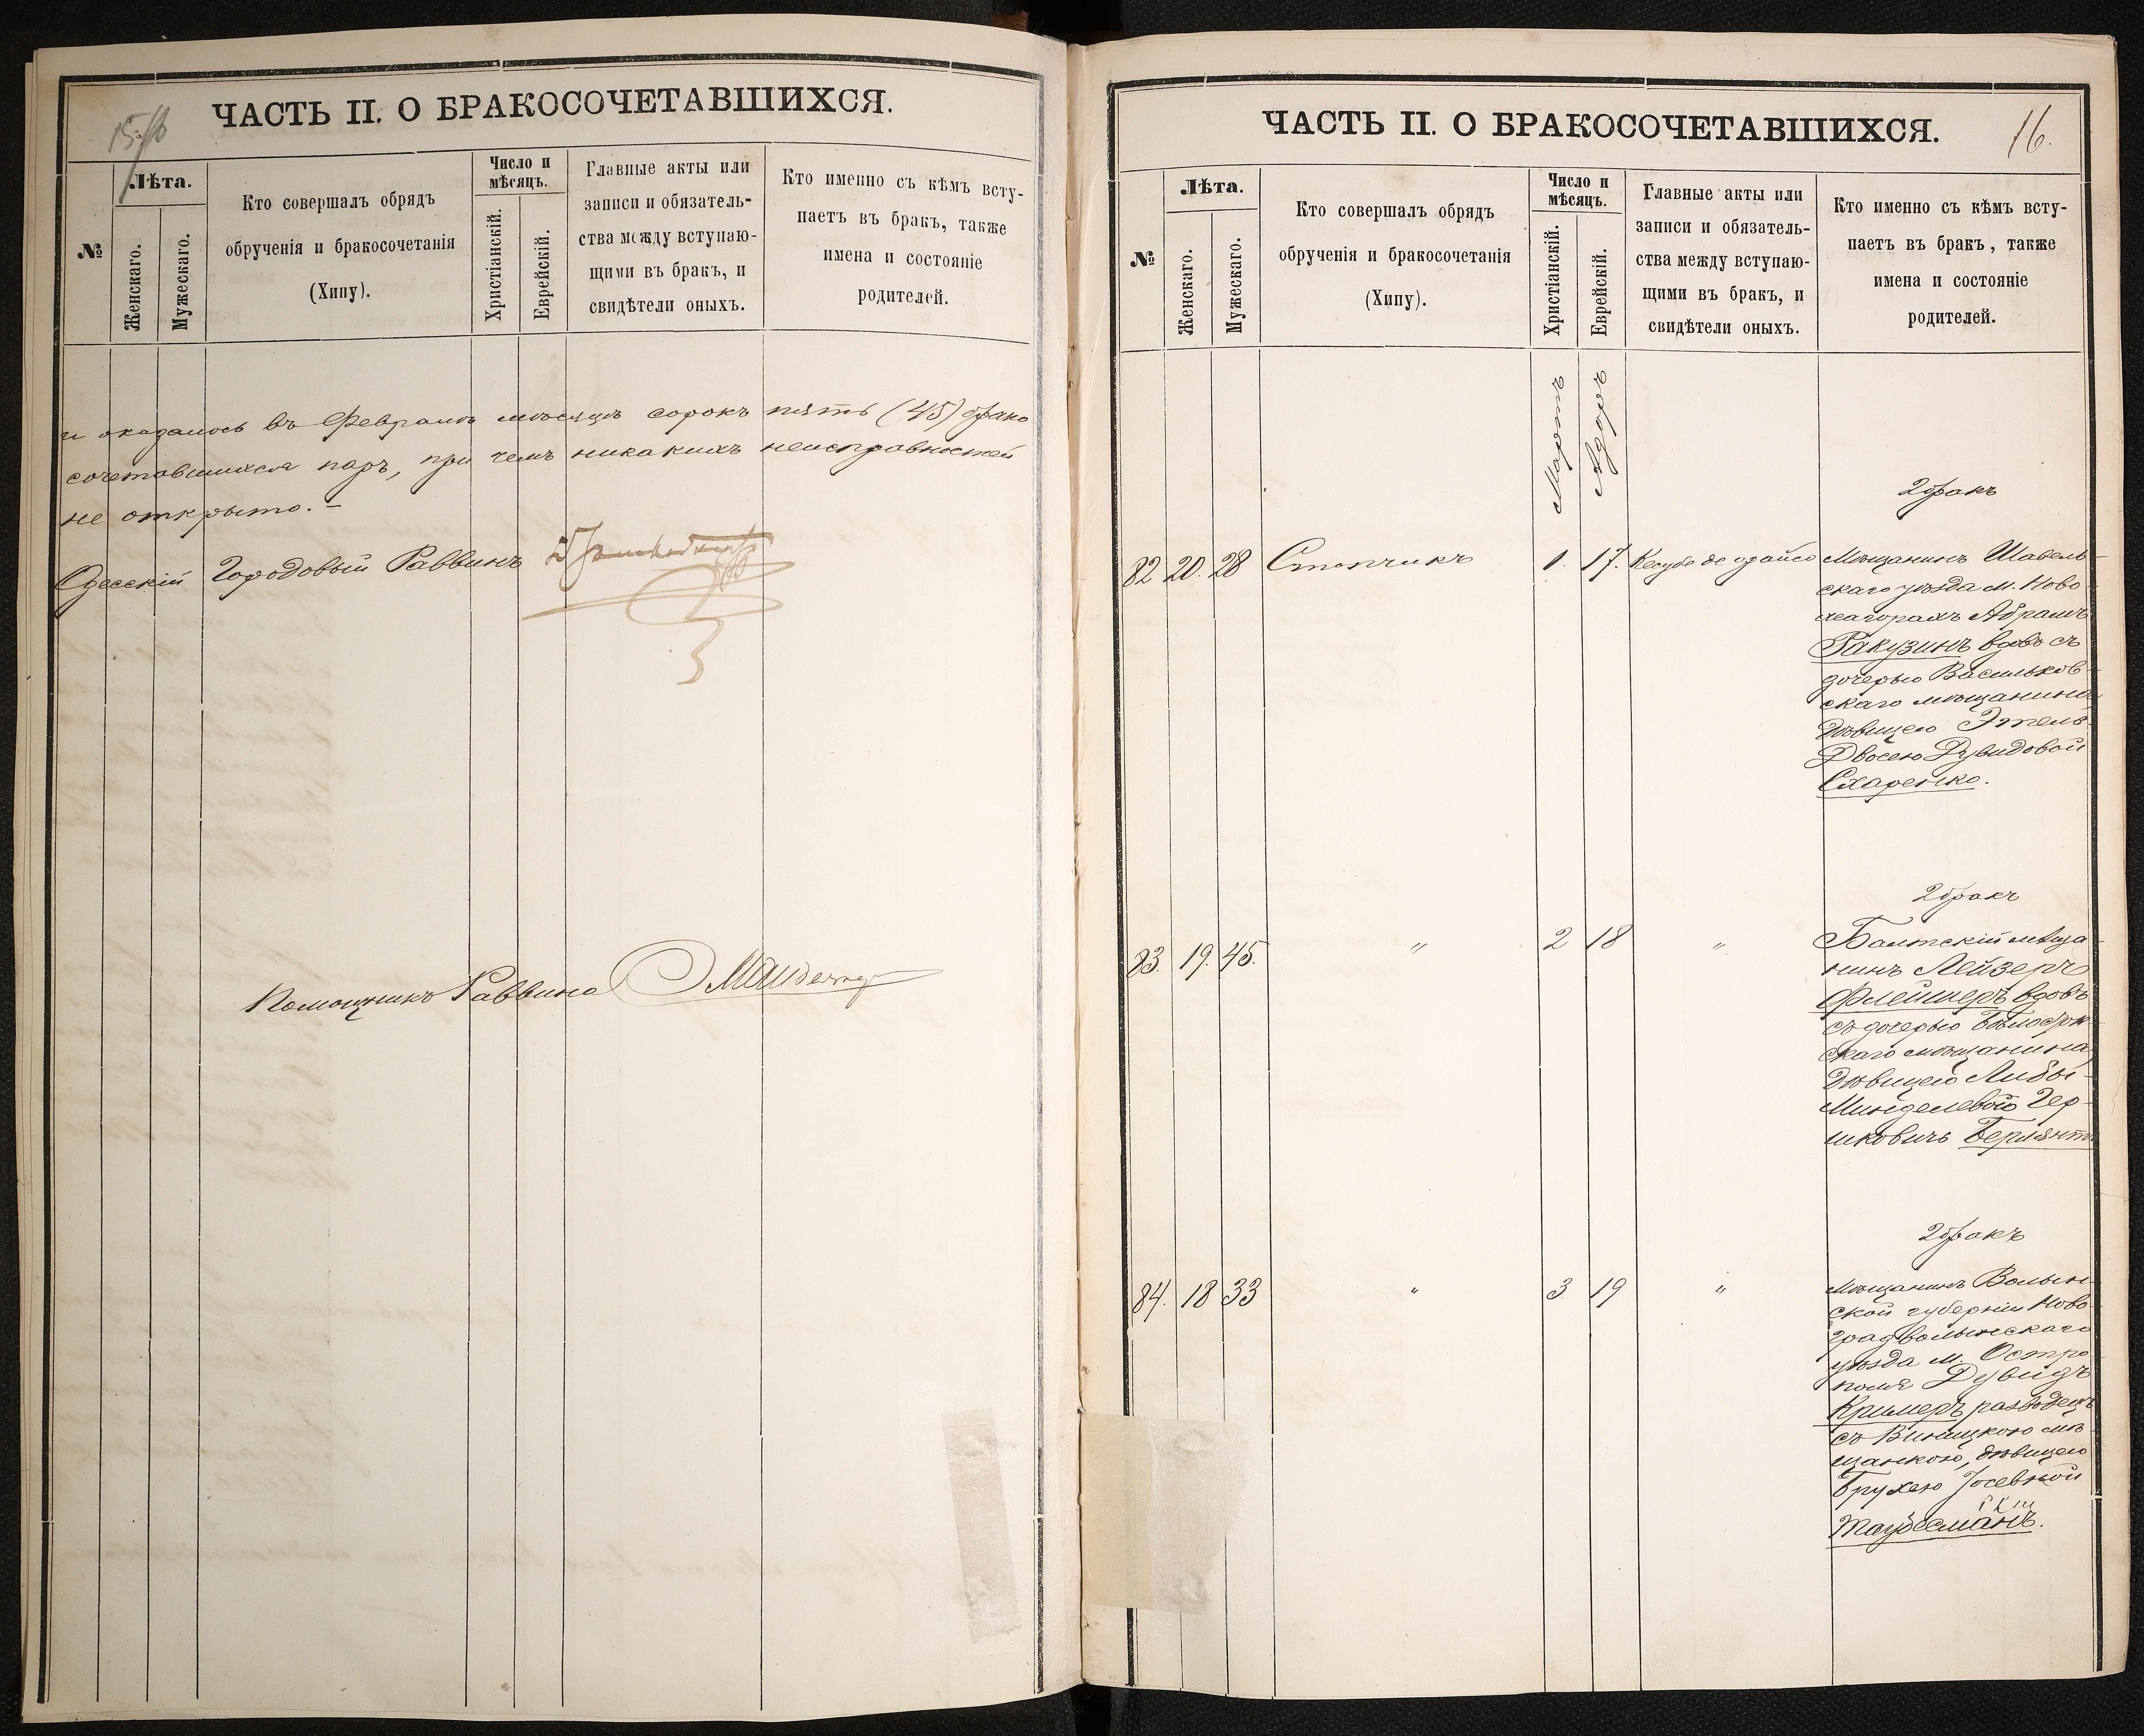 ЧАСТЬ II. О БРАКОСОЧЕТАВШИХСЯ.
№
Лѣта.
Женскаго.
Мужескаго.
Кто совершалъ обрядъ
обрученія и бракосочетанія
(Хипу).
Число и
мѣсяцъ.
Христіанскій.
Еврейскій.
Главные акты или
записи и обязатель-
ства между вступаю-
щими въ бракъ, и
свидѣтели оныхъ.
Кто именно съ кѣмъ всту-
паетъ въ бракъ, также
имена и состояніе
родителей.
и оказалось въ Февралѣ мѣсяцѣ сорокъ пять (45) брако
сочетавшихся паръ, при чемъ никакихъ неисправностей
не открыто. -
Одесскій Городовый Раввинъ
Помощникъ Раввина
ЧАСТЬ II. О БРАКОСОЧЕТАВШИХСЯ.
16.
№
Лѣта.
Женскаго.
Мужескаго.
Кто совершалъ обрядъ
обрученія и бракосочетанія
(Хипу).
Число и
мѣсяцъ.
Христіанскій.
Еврейскій.
Главные акты или
записи и обязатель-
ства между вступаю-
щими въ бракъ, и
свидѣтели оныхъ.
Кто именно съ кѣмъ всту-
паетъ въ бракъ, также
имена и состояніе
родителей.
Мартъ
Адоръ
2 бракъ
82 20. 28 Столчикъ 1. 17. Кесубо де орайсо Мѣщанинъ Шавель-
скаго уѣзда м. Ново
жагорахъ Абрамъ
Ракузинъ вдовъ съ
дочерью Васильков-
скаго мѣщанина
дѣвицею Этель-
Двосею Дувидовой
Схаренко.
2 бракъ
83. 19. 45. " 2 18 " Балтскій мѣща-
нинъ Лейзеръ
Флейшеръ вдовъ
съ дочерью
скаго мѣщанина
дѣвицею Либы-
Минделевою Гер-
шковичъ
2 бракъ
84. 18 33 " 3 19 " Мѣщанинъ Волын-
ской губерніи Ново-
градволынскаго
уѣзда м. Остро-
поля Дувидъ
Кримеръ разводецъ
съ Виницкою мѣ-
щанкою, дѣвицею
Брухею Іосевной